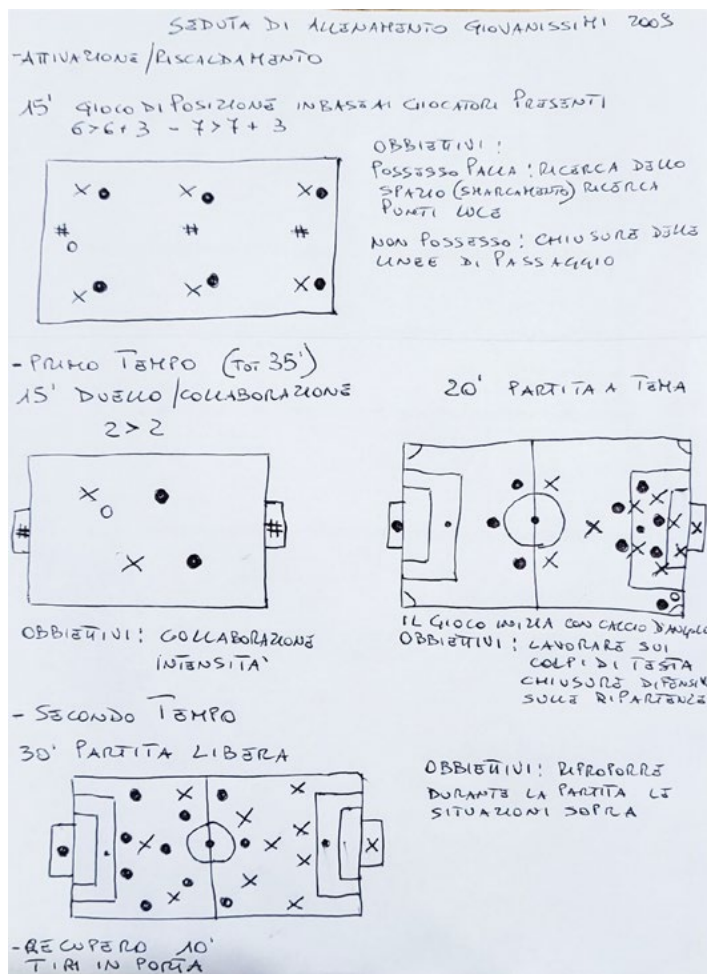 SEDUTA DI ALLENAMENTO GIOVANISSIMI 2009
-ATTIVAZIONE/RISCALDAMENTO
15' GIOCO DI POSIZIONE IN BASE AI GIOCATORI PRESENTI
6>6+3 - 7>7+3
OBBIETTIVI:
POSSESSO PALLA: RICERCA DELLO
SPAZIO (SMARCAMENTO) RICERCA
PUNTI LUCE
NON POSSESSO: CHIUSURE DELLE
LINEE DI PASSAGGIO
-PRIMO TEMPO (TOT 35')
15' DUELLO/COLLABORAZIONE
2>2
OBBIETTIVI: COLLABORAZIONE
INTENSITA'
20' PARTITA A TEMA
IL GIOCO INIZIA CON CALCIO D'ANGOLO
OBBIETTIVI: LAVORARE SUI
COLPI DI TESTA
CHIUSURE DIFENSIVE
SULLE RIPARTENZE
- SECONDO TEMPO
30' PARTITA LIBERA
OBBIETTIVI: RIPROPORRE
DURANTE LA PARTITA LE
SITUAZIONI SOPRA
-RECUPERO 10'
TIRI IN PORTA